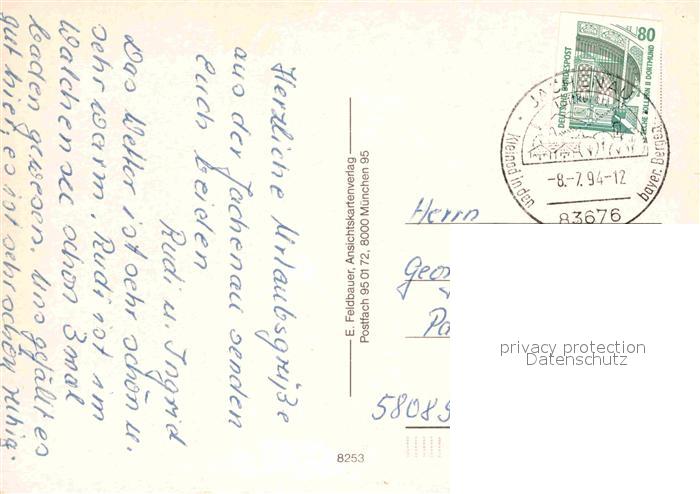 Herzliche Urlaubsgrüße
aus der Jachenau senden
Euch beiden
Rudi u. Ingrid
Das Wetter ist sehr schön u.
sehr warm. Rudi ist im
Walchensee schon 3mal
baden gewesen. Uns gefällt es
gut hier, es ist sehr schön ruhig.
E. Feldbauer, Ansichtskartenverlag
Postfach 95 01 72, 8000 München 95
8253
80
DEUTSCHE BUNDESPOST
ZECHE ZOLLERN II DORTMUND
JACHENAU
Kleinod in den bayer. Bergen
-8.-7.94-12
83676
Herrn
Geor
Pa
58089
privacy protection
Datenschutz